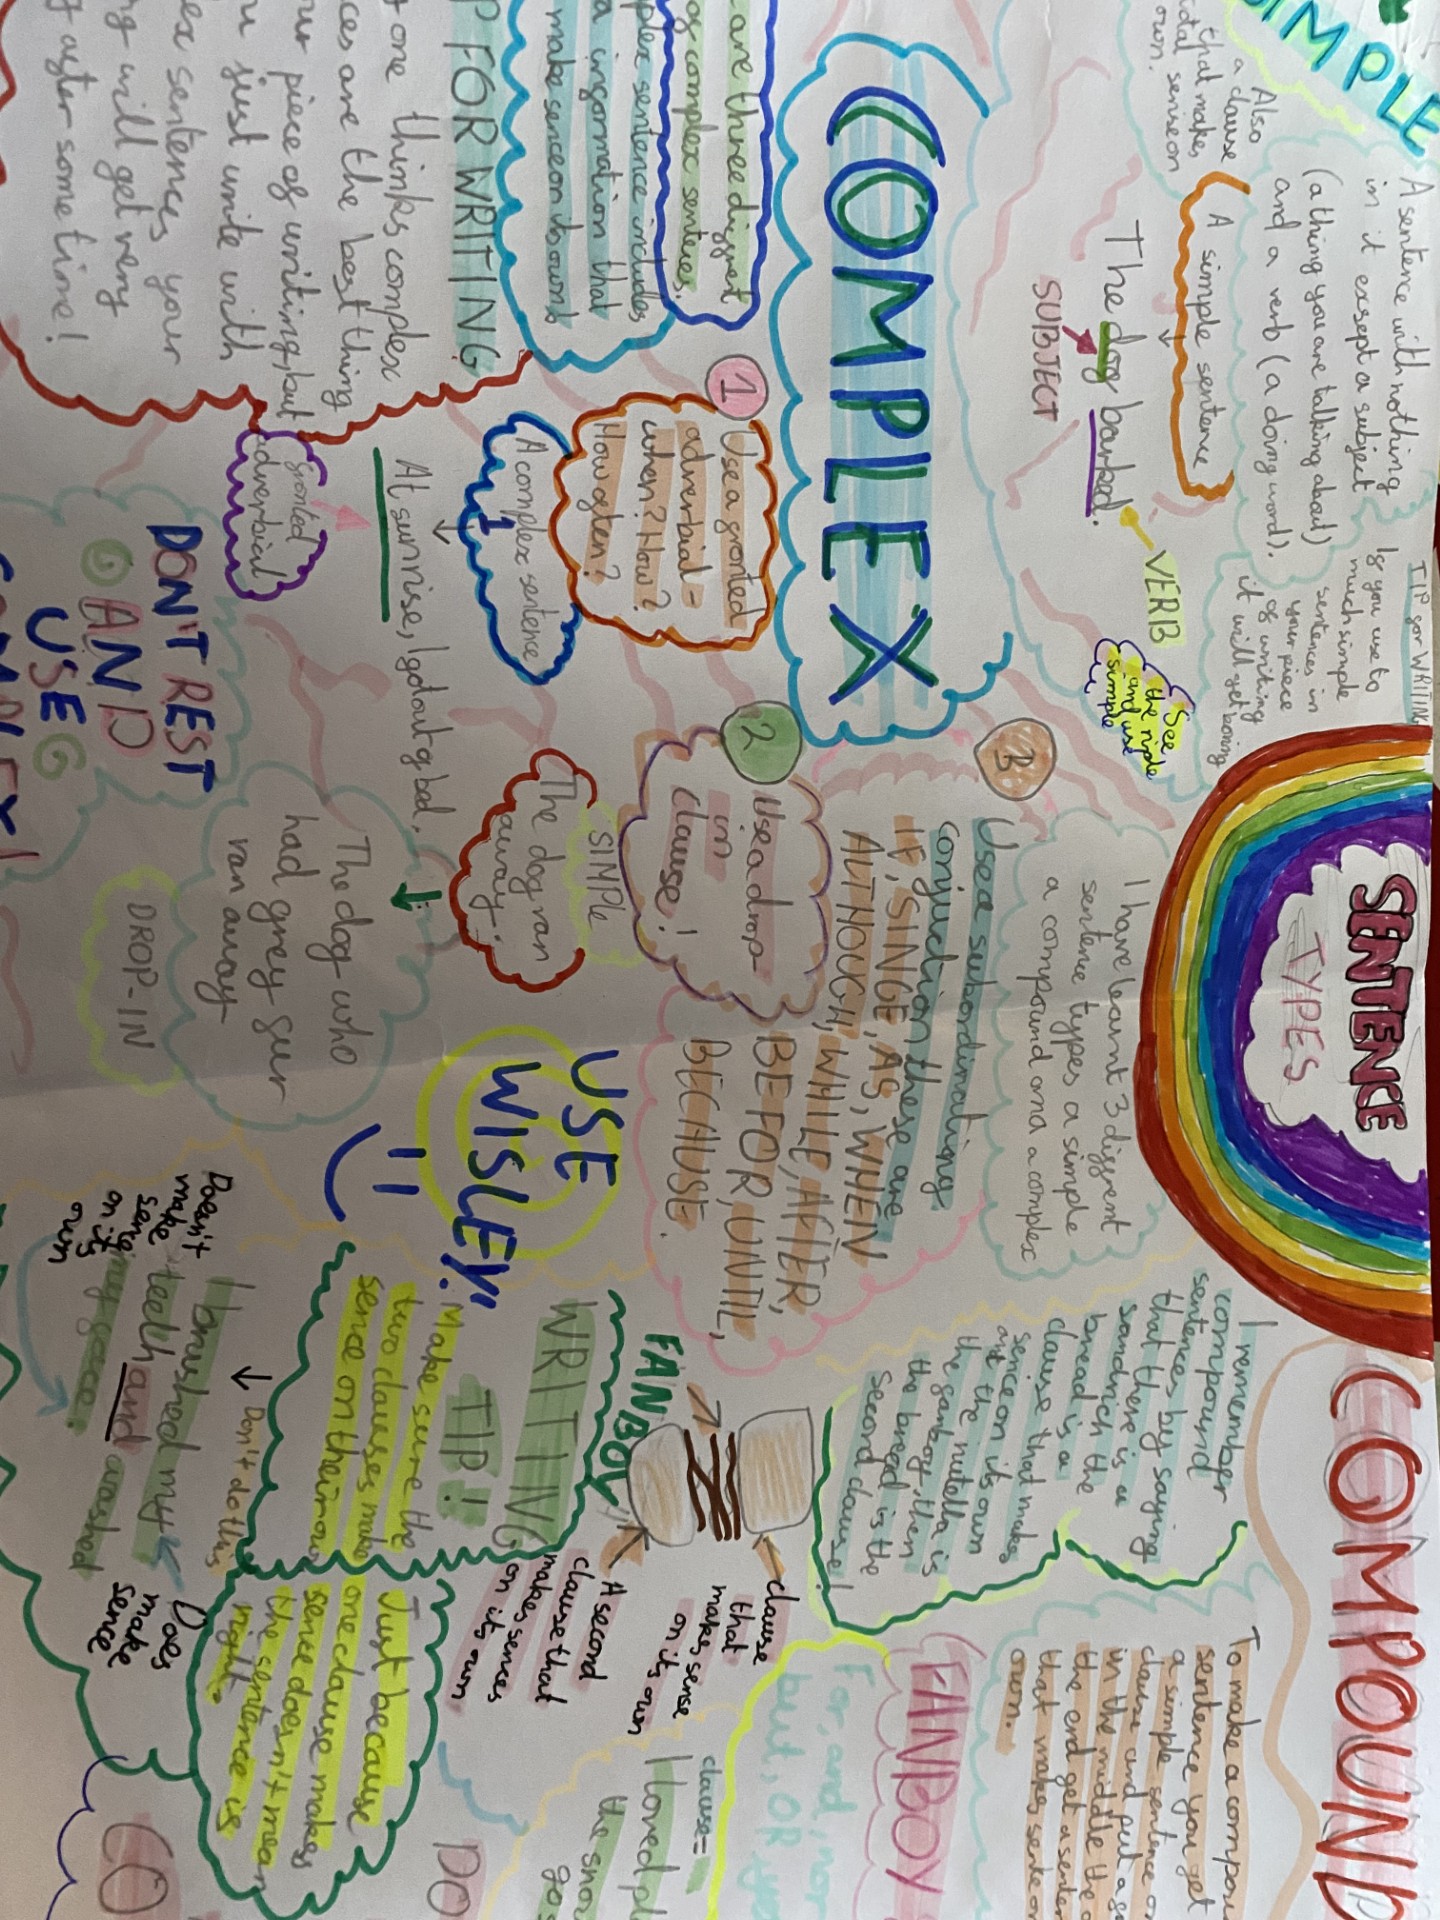 SENTENCE
TYPES
SIMPLE
A sentence with nothing
in it exsept a subject
(a thing you are talking about)
and a verb (a doing word).
Also
a clause
that makes
total sense on
own.
A simple sentence
The dog barked.
SUBJECT
VERB
TIP for WRITING
If you use to
much simple
sentences in
your piece
of writing
it will get boring
See
the riple
and use
simple
I have learnt 3 diffrent
sentence types a simple
a compound and a complex
COMPLEX
are three diffrent
of complex sentences.
complex sentence includes
a information that
make sence on its own
1
Use a fronted
adverbial -
when? How?
How often?
A complex sentence
1
At sunrise, I got out of bed.
fronted
adverbial
2
Use a drop-
in
clause!
SIMPLE
The dog ran
away.
The dog who
had grey fur
ran away
DROP-IN
3
Use a subordinating
conjunction these are
IF, SINCE, AS, WHEN
ALTHOUGH, WHILE, AFTER,
BEFOR, UNTIL,
BECAUSE.
USE
WISLEY!
FOR WRITING
one thinks complex
are the best thing
piece of writing, but
just write with
sentences your
will get very
after some time!
DON'T REST
AND
USE
COMPOUND
I remember
compound
sentences by saying
that there is a
sandwich the
bread is a
clause that makes
sence on its own
and the nutella is
the fanboy, then
the bread is the
second clause!
To make a compou
sentence you get
a simple sentence or
clause and put a
in the middle the
the end get a senten
that makes sente on
own.
FANBOY
For, and, nor
but, OR
FANBOY
clause
that
makes sense
on its own
A second
clause that
makes sences
on its own
WRITING
TIP!
Make sure the
two clauses make
sence on their own
Just because
one clause makes
sence doesn't mean
the sentence is
right.
Don't do this
I brushed my
teeth and washed
my face.
Doesn't
make
sence
on its
own
Does
make
sence
clause=
I loved
the snow
DO
CO